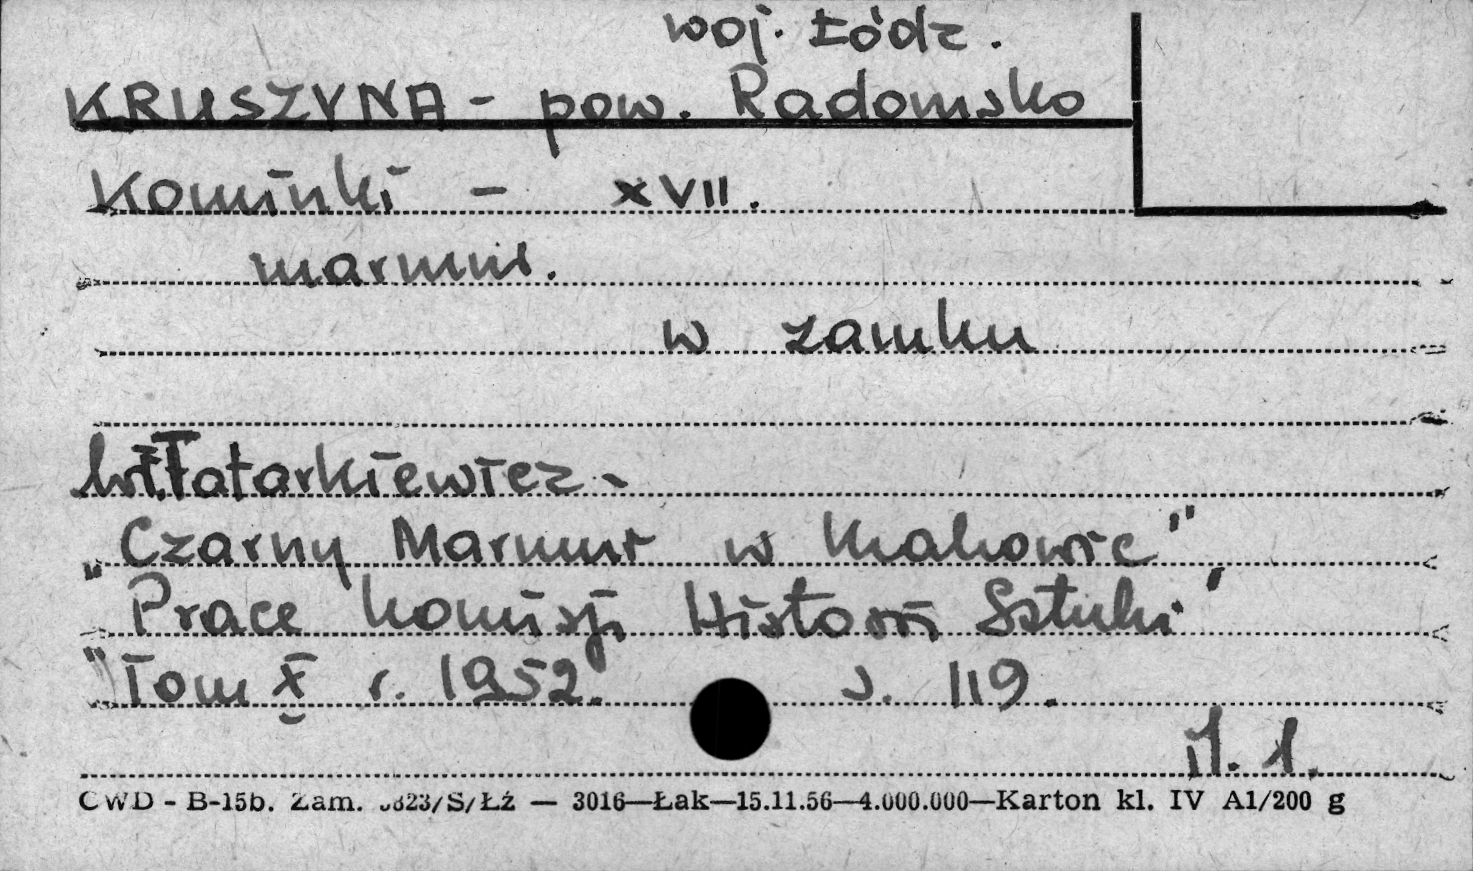 woj. Łódz.
KRUSZYNA - pow. Radomsko
Kominki - XVII.
marmur.
w zamku
Wł. Tatarkiewicz -
„Czarny Marmur w Krakowie"
„Prace Komisji Historii Sztuki"
„Tom X r. 1952." s. 119.
il. 1.
CWD - B-15b. Zam. 3823/S/Łż — 3016—Łak—15.11.56—4.000.000—Karton kl. IV A1/200 g